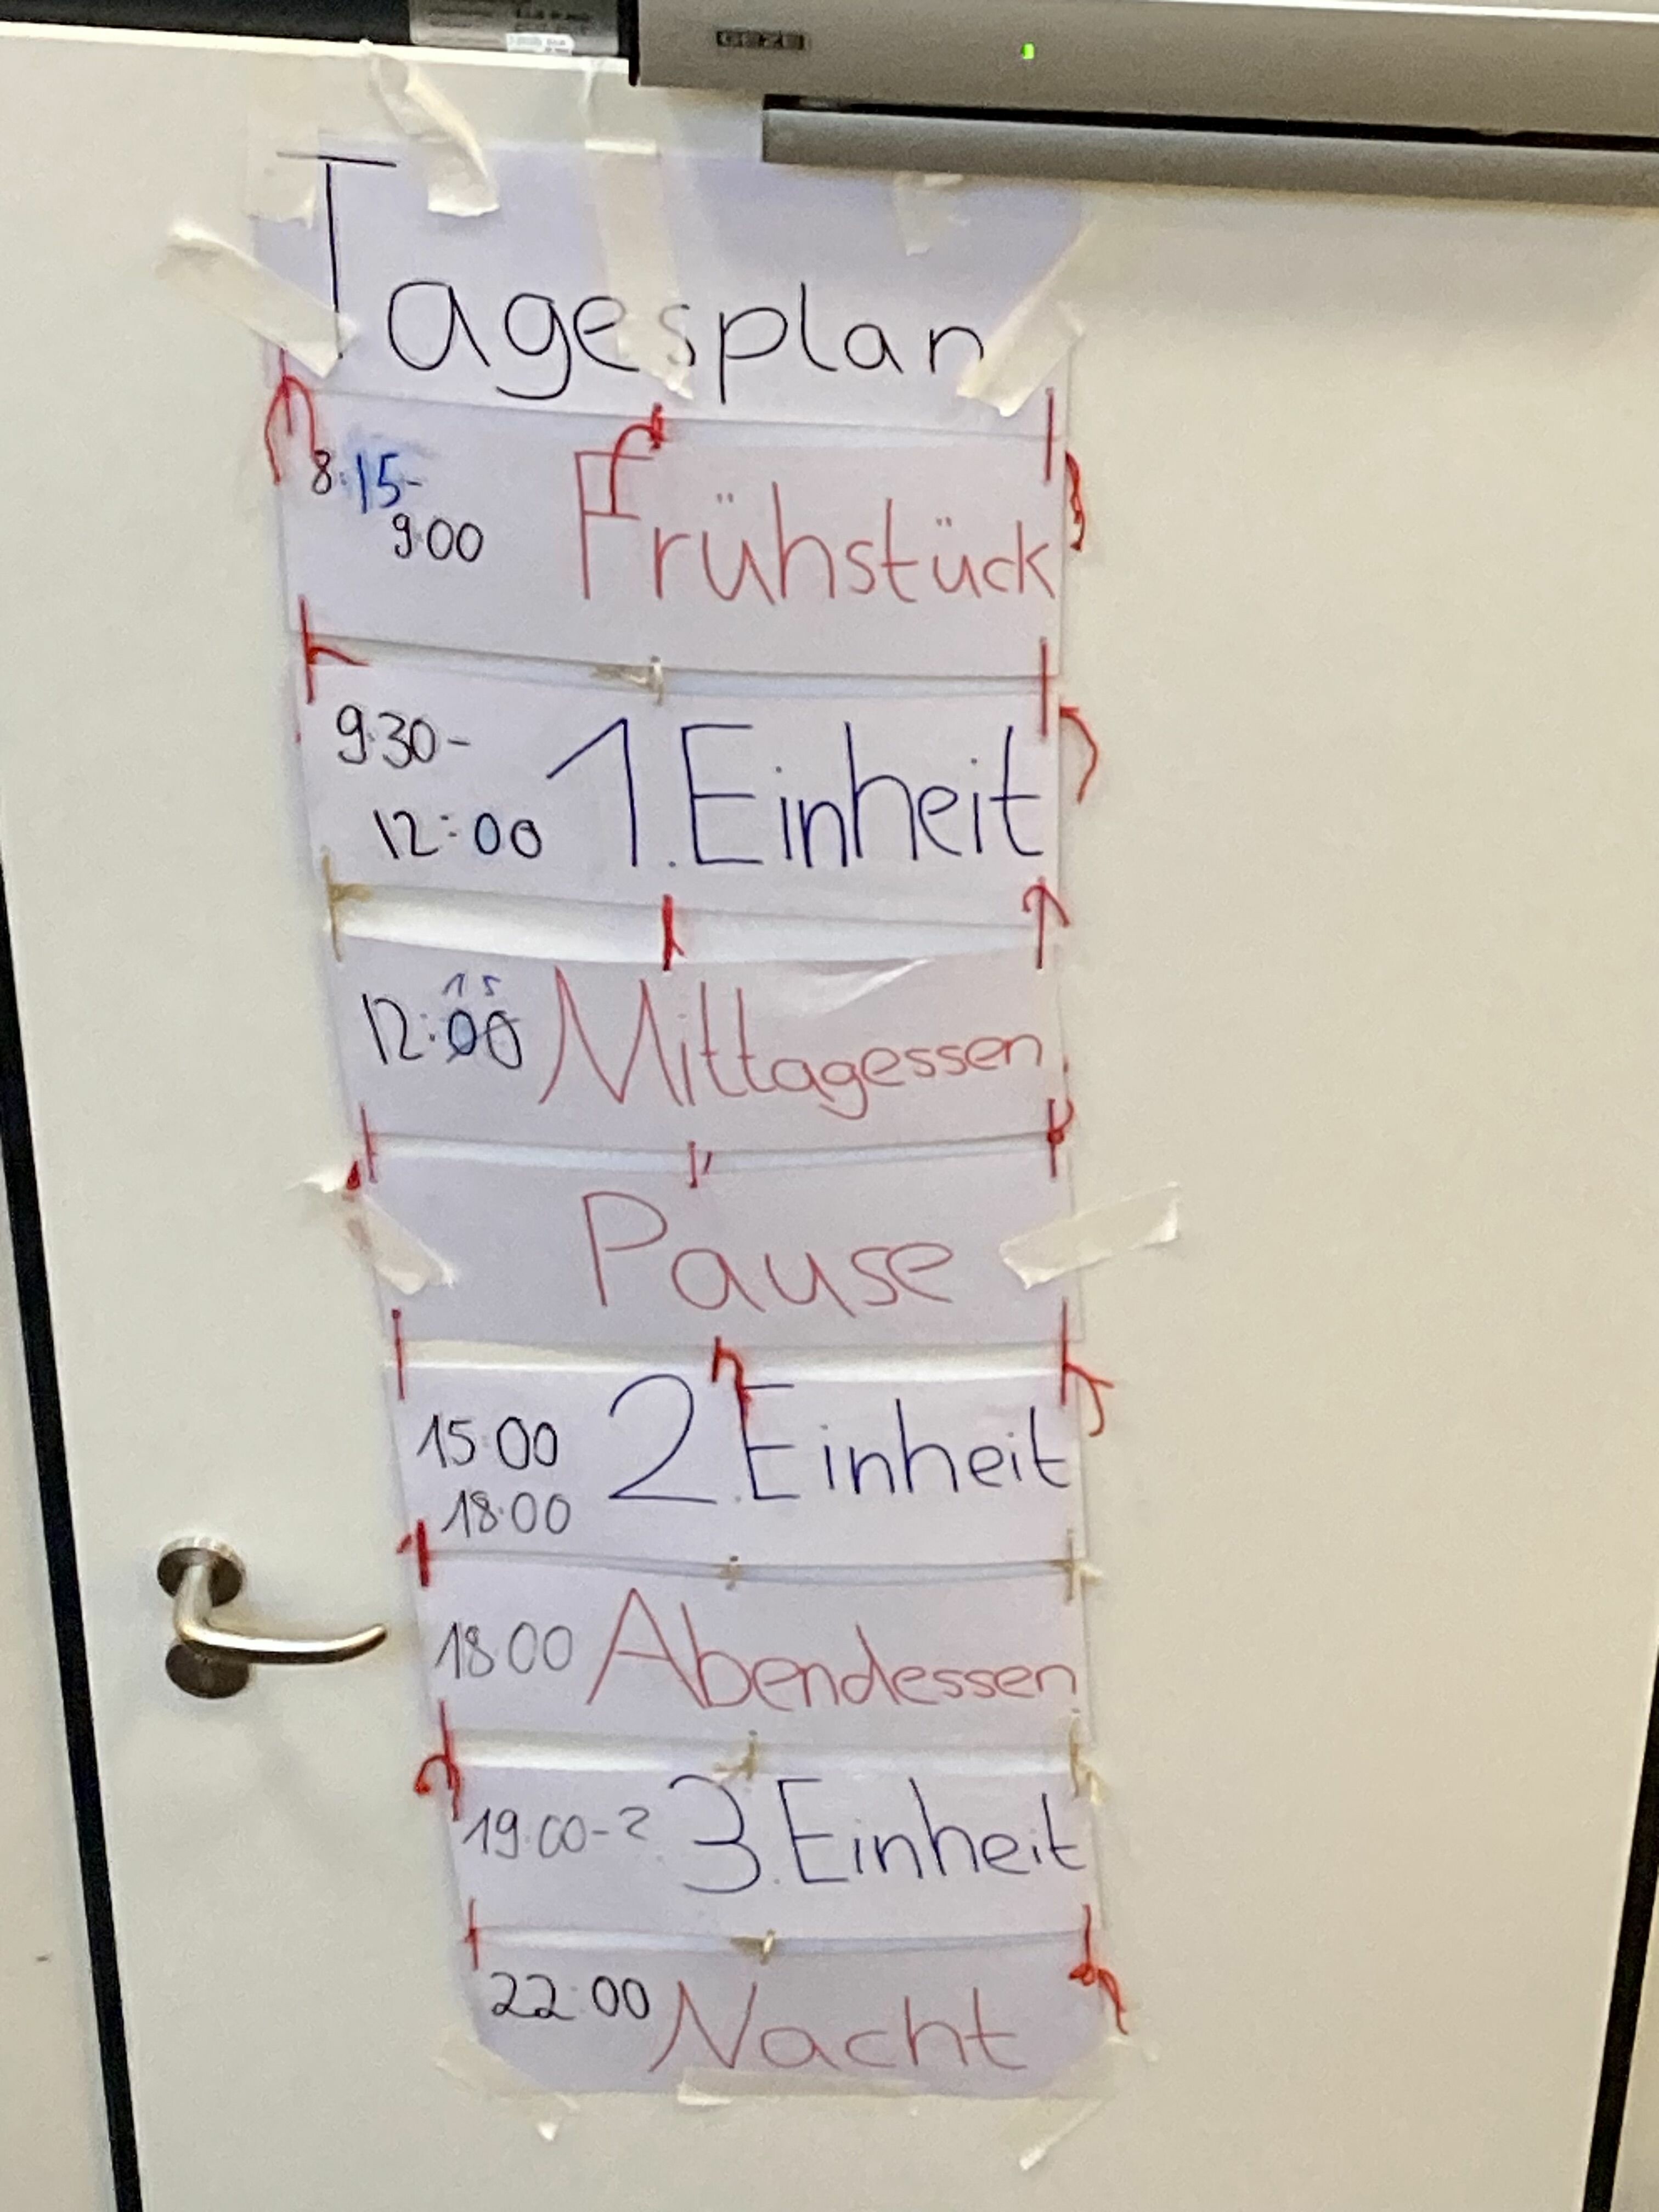 GEZE
Tagesplan
8:15-
9:00
Frühstück
9:30-
12:00
1. Einheit
15
12:00
Mittagessen
Pause
15:00
18:00
2. Einheit
18:00 Abendessen
19:00-? 3. Einheit
22:00 Nacht